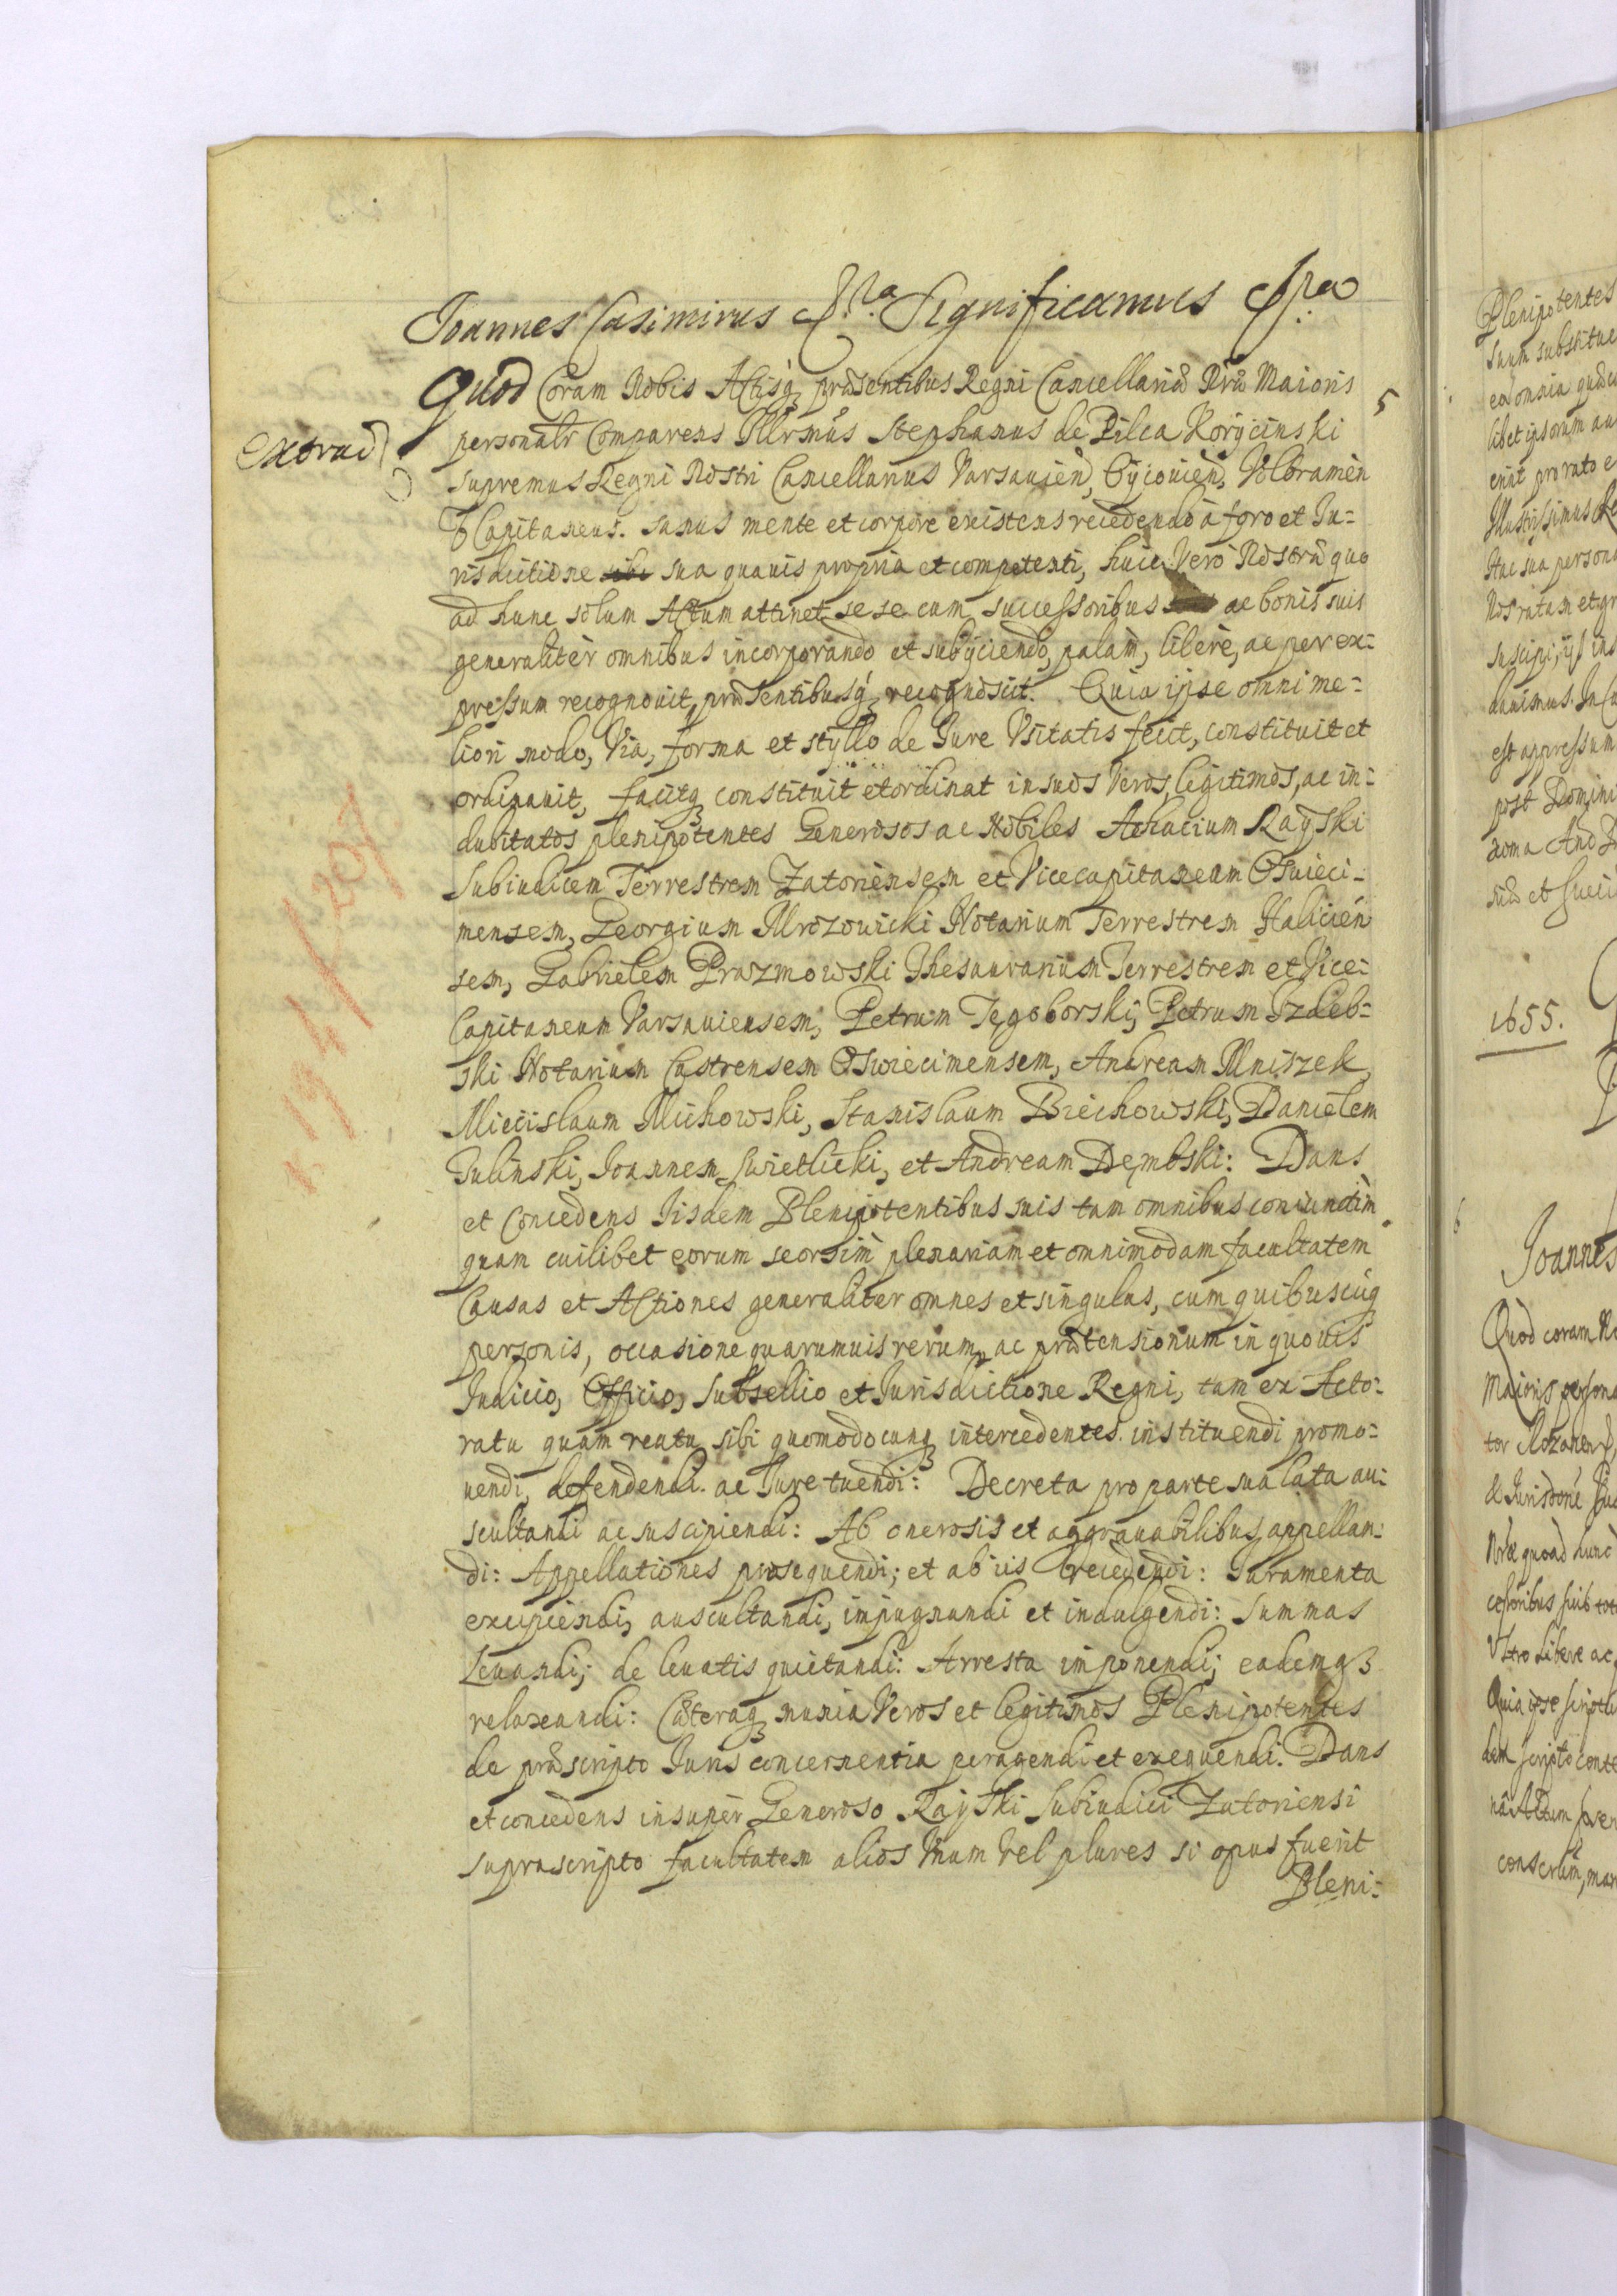 Joannes Casimirus &ra Significamus &ra
Quod Coram Nobis Actisq; præsentibus Regni Cancellariæ Nræ Maioris
5
personalr Comparens Illrmus Stephanus de Pilca Koryciński
Extrad
Supremus Regni Nostri Cancellarius Varsauien, Oycouien, Volbramen
Capitaneus. sanus mente et corpore existens recedendo à foro et Ju=
risdictione sua quauis propria et competenti, huic Vero Nostræ quo
ad hunc solum Actum attinet se se cum successoribus ac bonis suis
generaliter omnibus incorporando et subijciendo, palam, libere, ac per ex=
pressum recognouit, præsentibusq; recognoscit. Quia ipse omni me=
liori modo, Via, forma et styllo de Jure Vsitatis fecit, constituit et
ordinauit, facitq; constituit et ordinat in suos Veros, legitimos, ac in=
dubitatos plenipotentes Generosos ac Nobiles Achacium Rayski
Subiudicem Terrestrem Zatoriensem et Vicecapitaneum Osuieci=
mensem, Georgium Mrozowicki Notarium Terrestrem Halicien
sem, Gabrielem Prazmowski Thesaurarium Terrestrem et Vice=
Capitaneum Varsauiensem, Petrum Tęgoborski, Petrum Izdeb=
ski Notarium Castrensem Oswiecimensem, Andream Mniszek,
Miecislaum Michowski, Stanislaum Biechowski, Danielem
Julinski, Joannem Swietlicki, et Andream Dembski: Dans
et Concedens Iisdem Plenipotentibus suis tam omnibus coniunctim
quam cuilibet eorum seorsim plenariam et omnimodam facultatem
Causas et Actiones generaliter omnes et singulas, cum quibuscuq;
personis, occasione quarumuis rerum, ac prætensionum in quouis
Judicio, Officio, Subsellio et Jurisdictione Regni, tam ex Acto=
ratu quam reatu sibi quomodocunq; intercedentes. instituendi promo=
uendi, defendendi. ac Jure tuendi: Decreta pro parte sua lata au=
scultandi ac suscipiendi: Ab onerosis et aggrauabilibus appellan=
di: Appellationes prosequendi; et ab iis recedendi: Juramenta
excipiendi, auscultandi, impugnandi et indulgendi: Summas
Leuandi; de leuatis quietandi: Arresta imponendi; eademq;
relaxandi: Cæteraq; munia Veros et legitimos Plenipotentes
de præscripto Juris concernentia peragendi et exequendi. Dans
et concedens insuper Generoso Rayski Subiudici Zatoriensi
suprascripto facultatem alios Vnum vel plures si opus fuerit
Pleni=
Plenipotentes
suum substitue
ea omnia
libet ipsorum
erint pro rato e
Illustrissimus
Hac sua person
Nos ratam et gr
dauimus. In
est appressum
post Domini
1655.
Joannes
Quod coram
Maioris person
quoad hunc
Vltro libere ac
Quia ipse